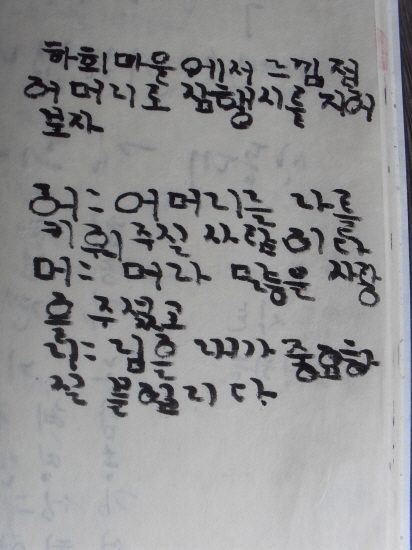 하회마을에서 느낌점
어머니로 삼행시를 지어
보자
어 = 어머니는 나를
키워 주신 사람이다
머 = 머리 사랑
을 주셨고
니 = 님은 내가 중요한